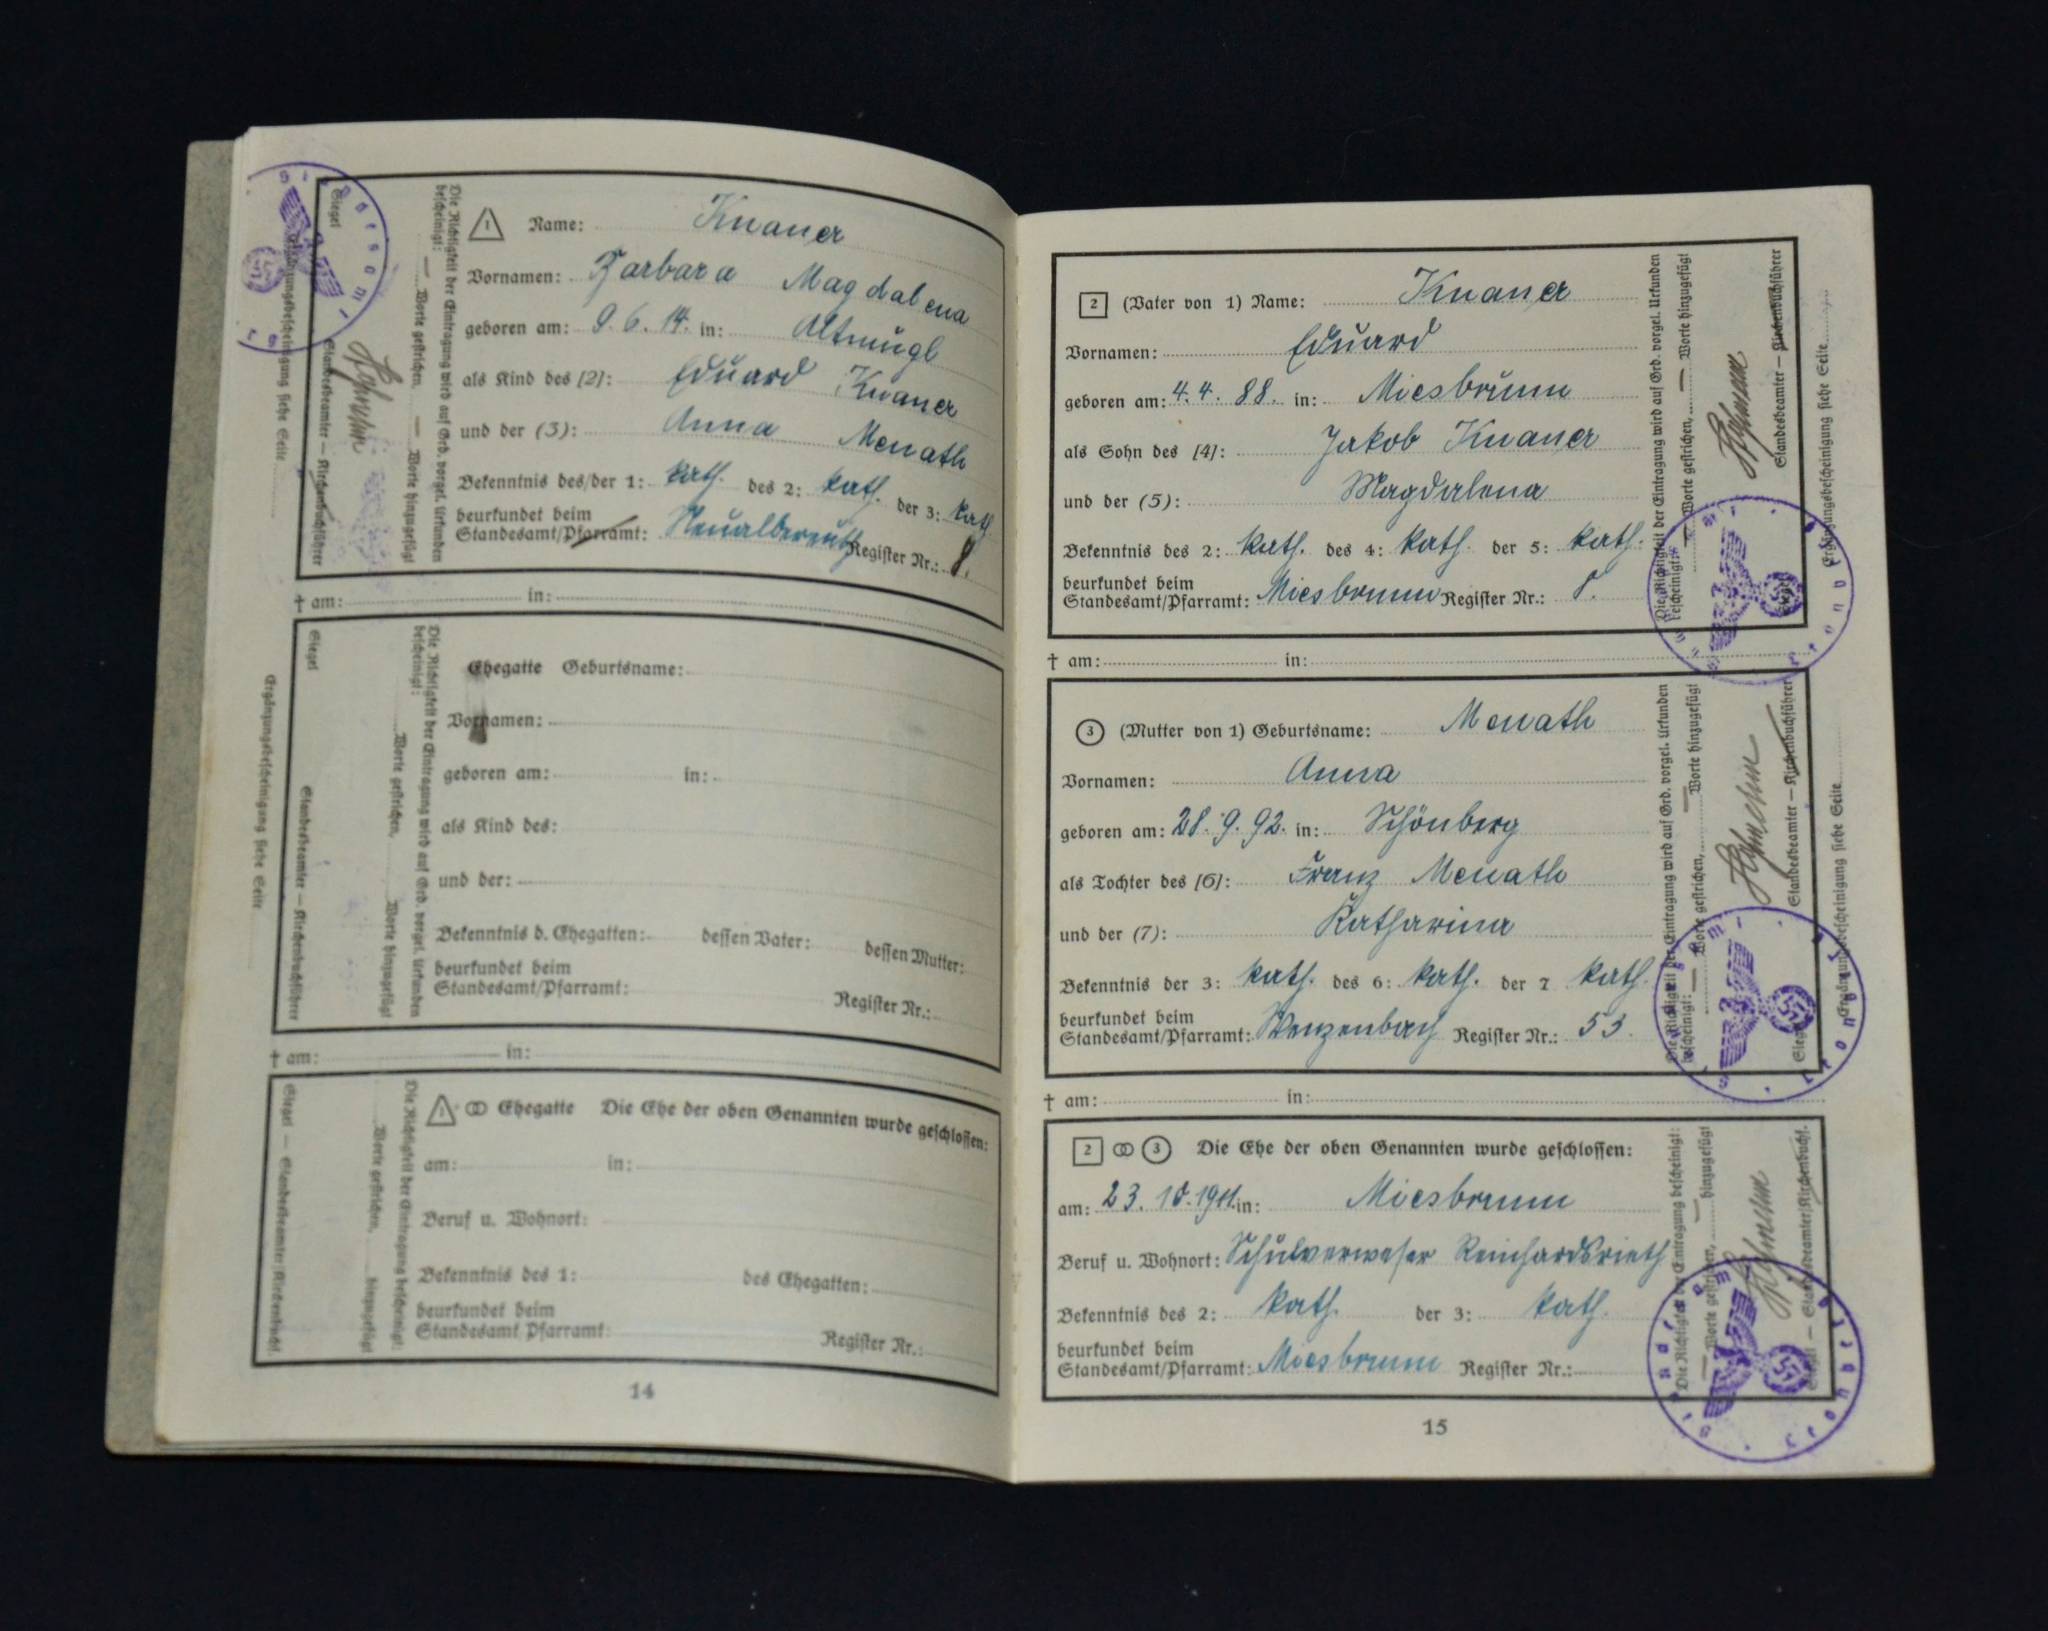 1 Name: Knauer
Vornamen: Barbara Magdalena
geboren am: 9. 6. 14. in: Altmugl
als Kind des [2]: Eduard Knauer
und der (3): Anna Menath
Bekenntnis des/der 1: kath. des 2: kath. der 3: kath
beurkundet beim
Standesamt/Pfarramt: Neualbenreuth Register Nr.: 8.
Die Richtigkeit der Eintragung wird auf Grd. vorgel. Urkunden
bescheinigt: — Worte gestrichen, — Worte hinzugefügt
Siegel Standesbeamter — Kirchenbuchführer
Ergänzungsbescheinigung siehe Seite
† am: in:
Ehegatte Geburtsname:
Vornamen:
geboren am: in:
als Kind des:
und der:
Bekenntnis d. Ehegatten: dessen Vater: dessen Mutter:
beurkundet beim
Standesamt/Pfarramt: Register Nr.:
Die Richtigkeit der Eintragung wird auf Grd. vorgel. Urkunden
bescheinigt: Worte gestrichen, Worte hinzugefügt
Siegel Standesbeamter — Kirchenbuchführer
Ergänzungsbescheinigung siehe Seite
† am: in:
1 ⚭ Ehegatte Die Ehe der oben Genannten wurde geschlossen:
am: in:
Beruf u. Wohnort:
Bekenntnis des 1: des Ehegatten:
beurkundet beim
Standesamt/Pfarramt: Register Nr.:
Die Richtigkeit der Eintragung bescheinigt:
Worte gestrichen, hinzugefügt
Siegel — Standesbeamter/Kirchenbuchf.
14
2 (Vater von 1) Name: Knauer
Vornamen: Eduard
geboren am: 4. 4. 88. in: Miesbrunn
als Sohn des [4]: Jakob Knauer
und der (5): Magdalena
Bekenntnis des 2: kath. des 4: kath. der 5: kath.
beurkundet beim
Standesamt/Pfarramt: Miesbrunn Register Nr.: 8.
Die Richtigkeit der Eintragung wird auf Grd. vorgel. Urkunden
bescheinigt: — Worte gestrichen, — Worte hinzugefügt
Siegel Standesbeamter — Kirchenbuchführer
Ergänzungsbescheinigung siehe Seite
† am: in:
3 (Mutter von 1) Geburtsname: Menath
Vornamen: Anna
geboren am: 28. 9. 92. in: Schönberg
als Tochter des [6]: Franz Menath
und der (7): Katharina
Bekenntnis der 3: kath. des 6: kath. der 7 kath.
beurkundet beim
Standesamt/Pfarramt: Wenzenbach Register Nr.: 53.
Die Richtigkeit der Eintragung wird auf Grd. vorgel. Urkunden
bescheinigt: — Worte gestrichen, — Worte hinzugefügt
Siegel Standesbeamter — Kirchenbuchführer
Ergänzungsbescheinigung siehe Seite
† am: in:
2 ⚭ 3 Die Ehe der oben Genannten wurde geschlossen:
am: 23. 10. 1911. in: Miesbrunn
Beruf u. Wohnort: Schulverweser Reinhardsrieth
Bekenntnis des 2: kath. der 3: kath.
beurkundet beim
Standesamt/Pfarramt: Miesbrunn Register Nr.:
Die Richtigkeit der Eintragung bescheinigt:
— Worte gestrichen, — hinzugefügt
Siegel — Standesbeamter/Kirchenbuchf.
15